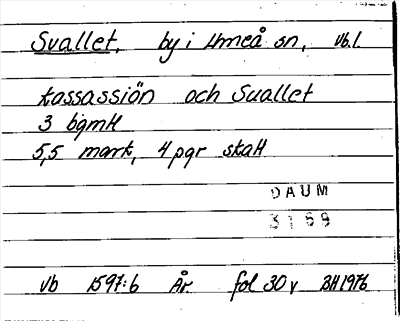 Svallet, by i Umeå sn, Vb.l.
Kassassiön och Suallet
3 bgmH
5,5 mark, 4 pgr skaH
DAUM
3169
Vb 1597:6 År fol 30v BH1976